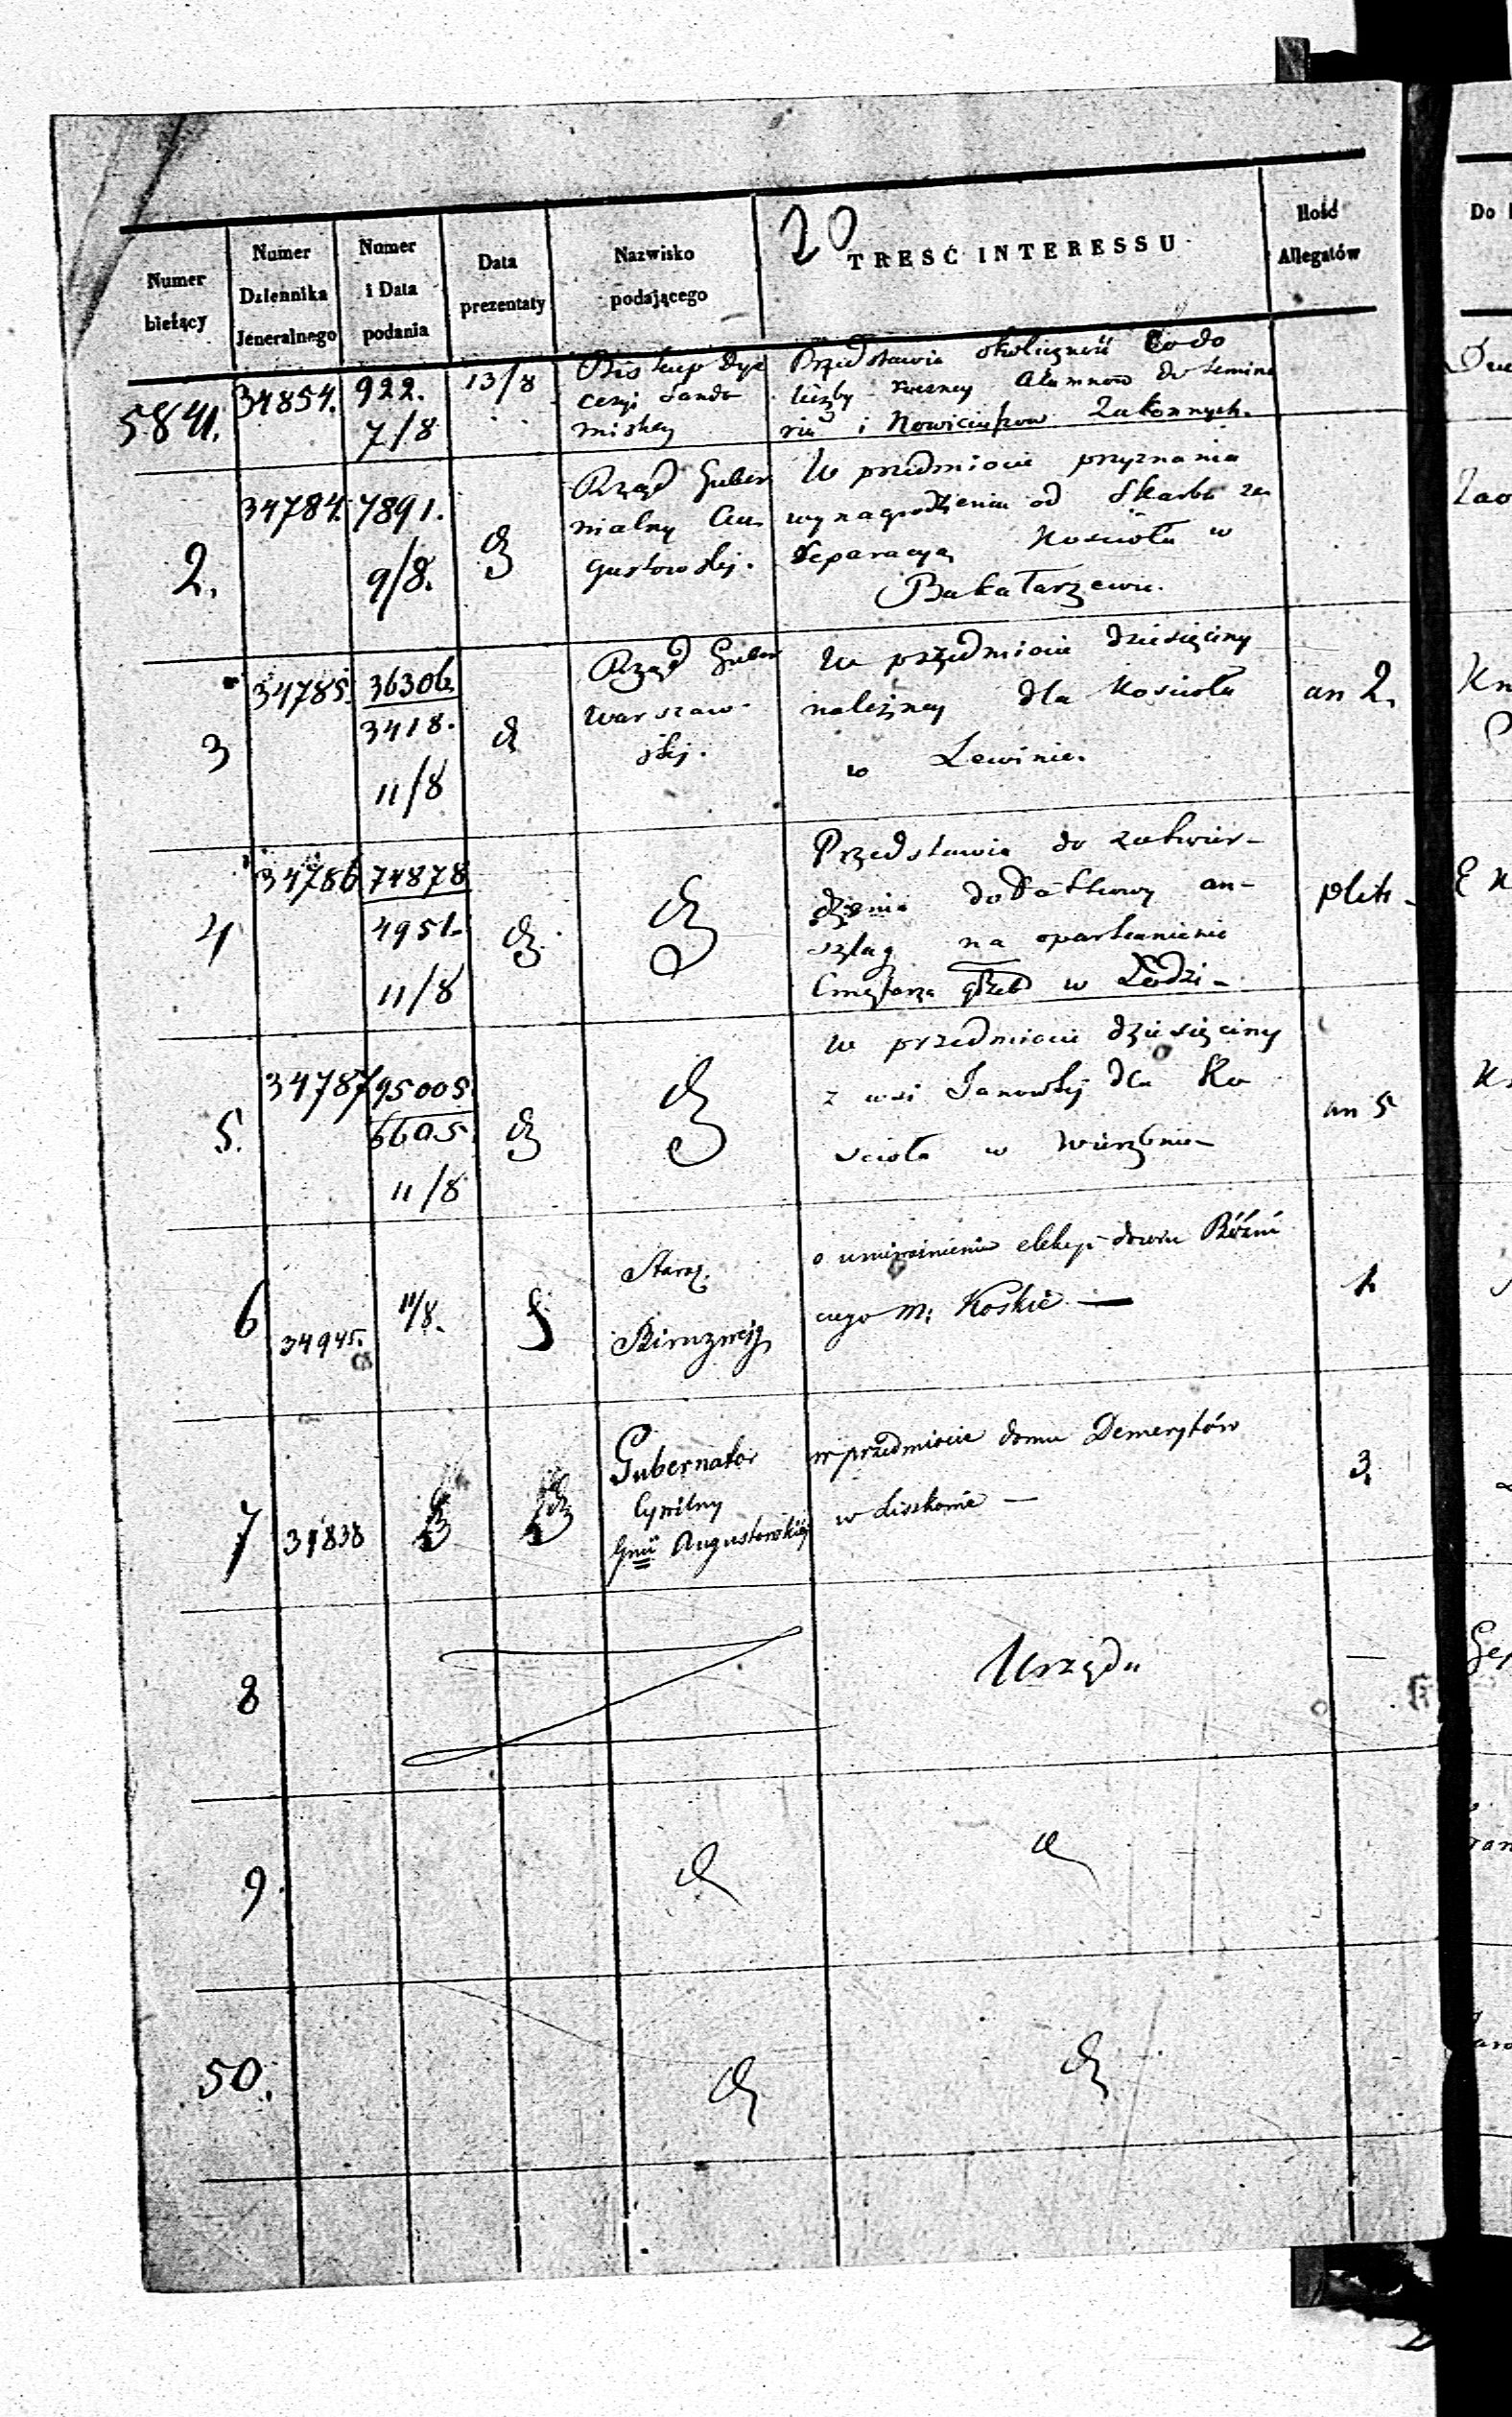 20
Numer bieżący
Numer Dziennika Jeneralnego
Numer i Data podania
Data prezentaty
Nazwisko podającego
TRESĆ INTERESSU
Ilość Allegatów
5841.
34854.
922.
7/8
13/8
Biskup Dye
cezyi Sando
mirskey
Przedstawia okoliczność co do
liczby roczney Alumnow do Semina
riu i Nowiciuszow Zakonnych.
2.
34784.
7891.
9/8.
Rząd Guber
nialny Au
gustowskij.
W przedmiocie przyznania
wynagrodzenia od Skarbu za
reparacyą Kościoła w
Bakałarzewie.
3
34785.
36306.
3418.
11/8
Rząd Guber
Warszaw-
skij.
W przedmiocie dziesięciny
należney dla Kościoła
w Lewinie.
an 2.
4
34786
74878
4951.
11/8
Przedstawia do zatwier-
dzenia dodatkowy an-
szlag na oparkanienie
Cmętarza grzeb w Łodzi-
plik
5.
34787
95005
6605
11/8
W przedmiocie dziesięciny
z wsi Janowskij dla Ko
scioła w Wierzbnie-
an 5
6
34945.
11/8.
Staroz.
o elekcyi dozoru Bóżni
czego m. Koskie.
1.
7
34838
Gubernator
Cywilny
Gnii Augustowskiej
w przedmiocie domu Demerytów
w Liszkowie
3.
8
Urzędu
9
50.
Do